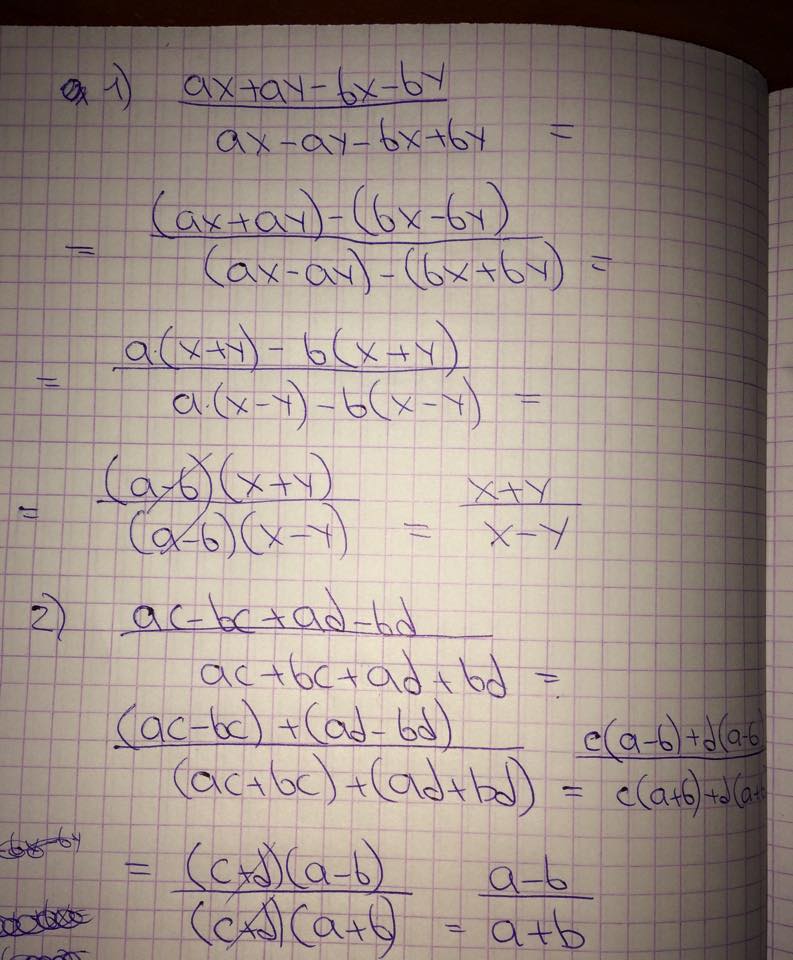 1) ax+ay-bx-by
ax-ay-bx+by =
= (ax+ay)-(bx-by)
(ax-ay)-(bx+by) =
= a·(x+y)-b(x+y)
a·(x-y)-b(x-y) =
= (a-b)(x+y) x+y
(a-b)(x-y) = x-y
2) ac-bc+ad-bd
ac+bc+ad+bd =
(ac-bc)+(ad-bd) c(a-b)+d(a-b
(ac+bc)+(ad+bd) = c(a+b)+d(a+
= (c+d)(a-b) a-b
(c+d)(a+b) = a+b